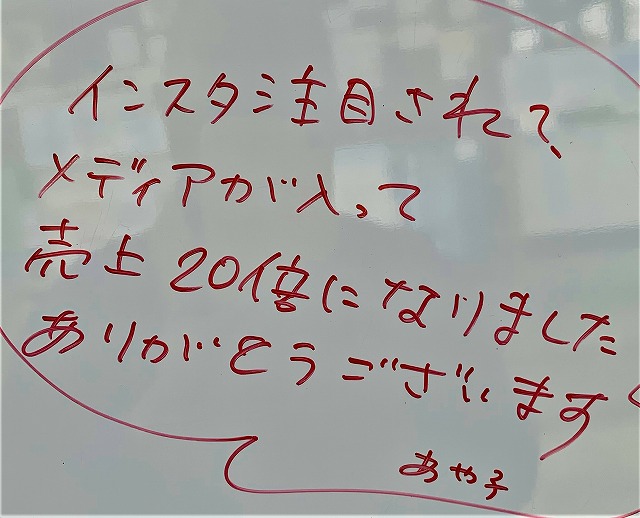 インスタ注目され?
メディアが入って
売上20倍になりました
ありがとうございます
あや子